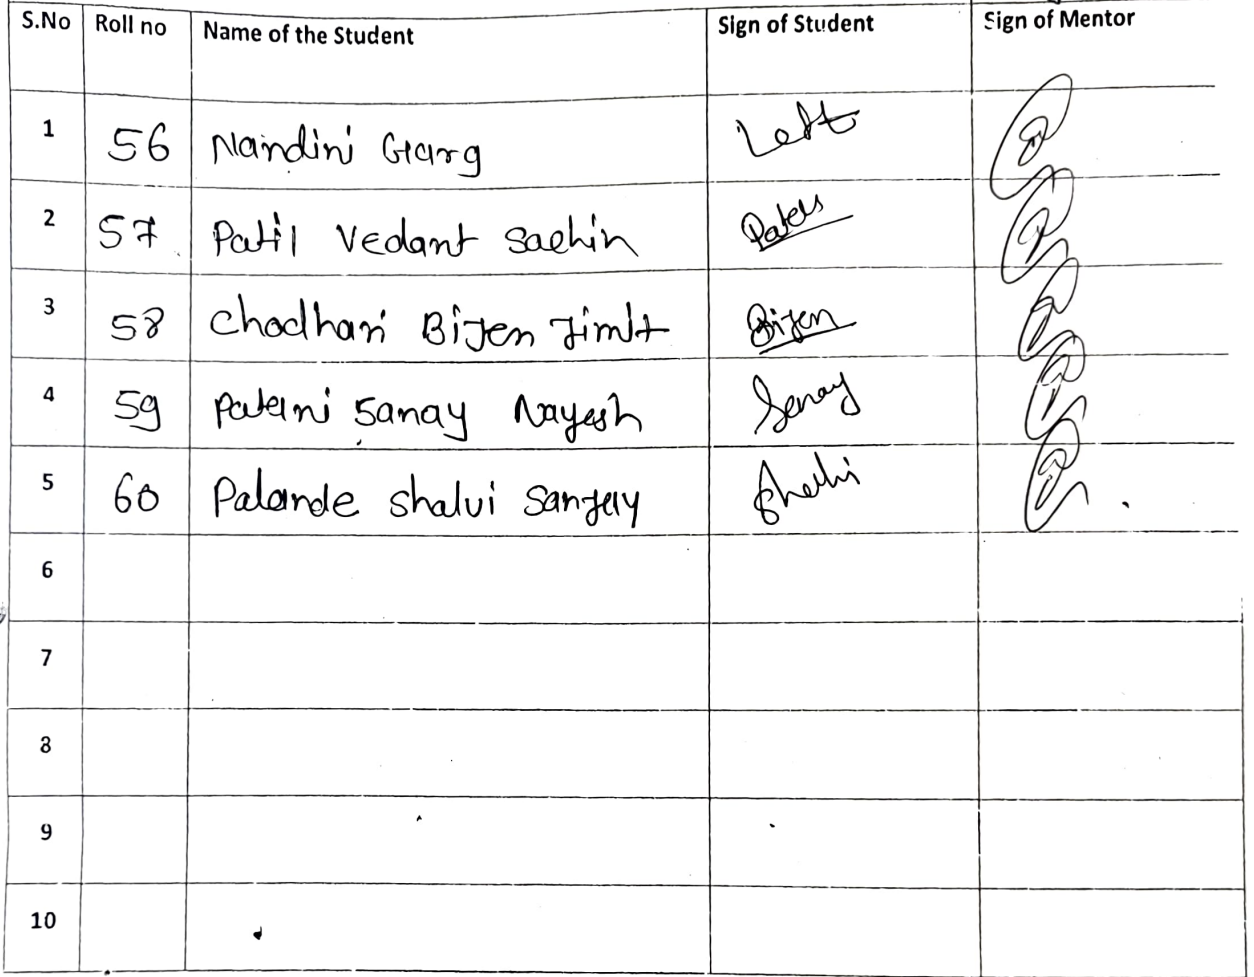 S.No Roll no Name of the Student Sign of Student Sign of Mentor
1 56 Nandini Garg Left
2 57 Patil Vedant Sachin
3 58 Chodhari Bijen Jimit Bijen
4 59 Patani Sanay Nayesh Sanay
5 60 Palande Shalvi Sanjay
6
7
8
9
10